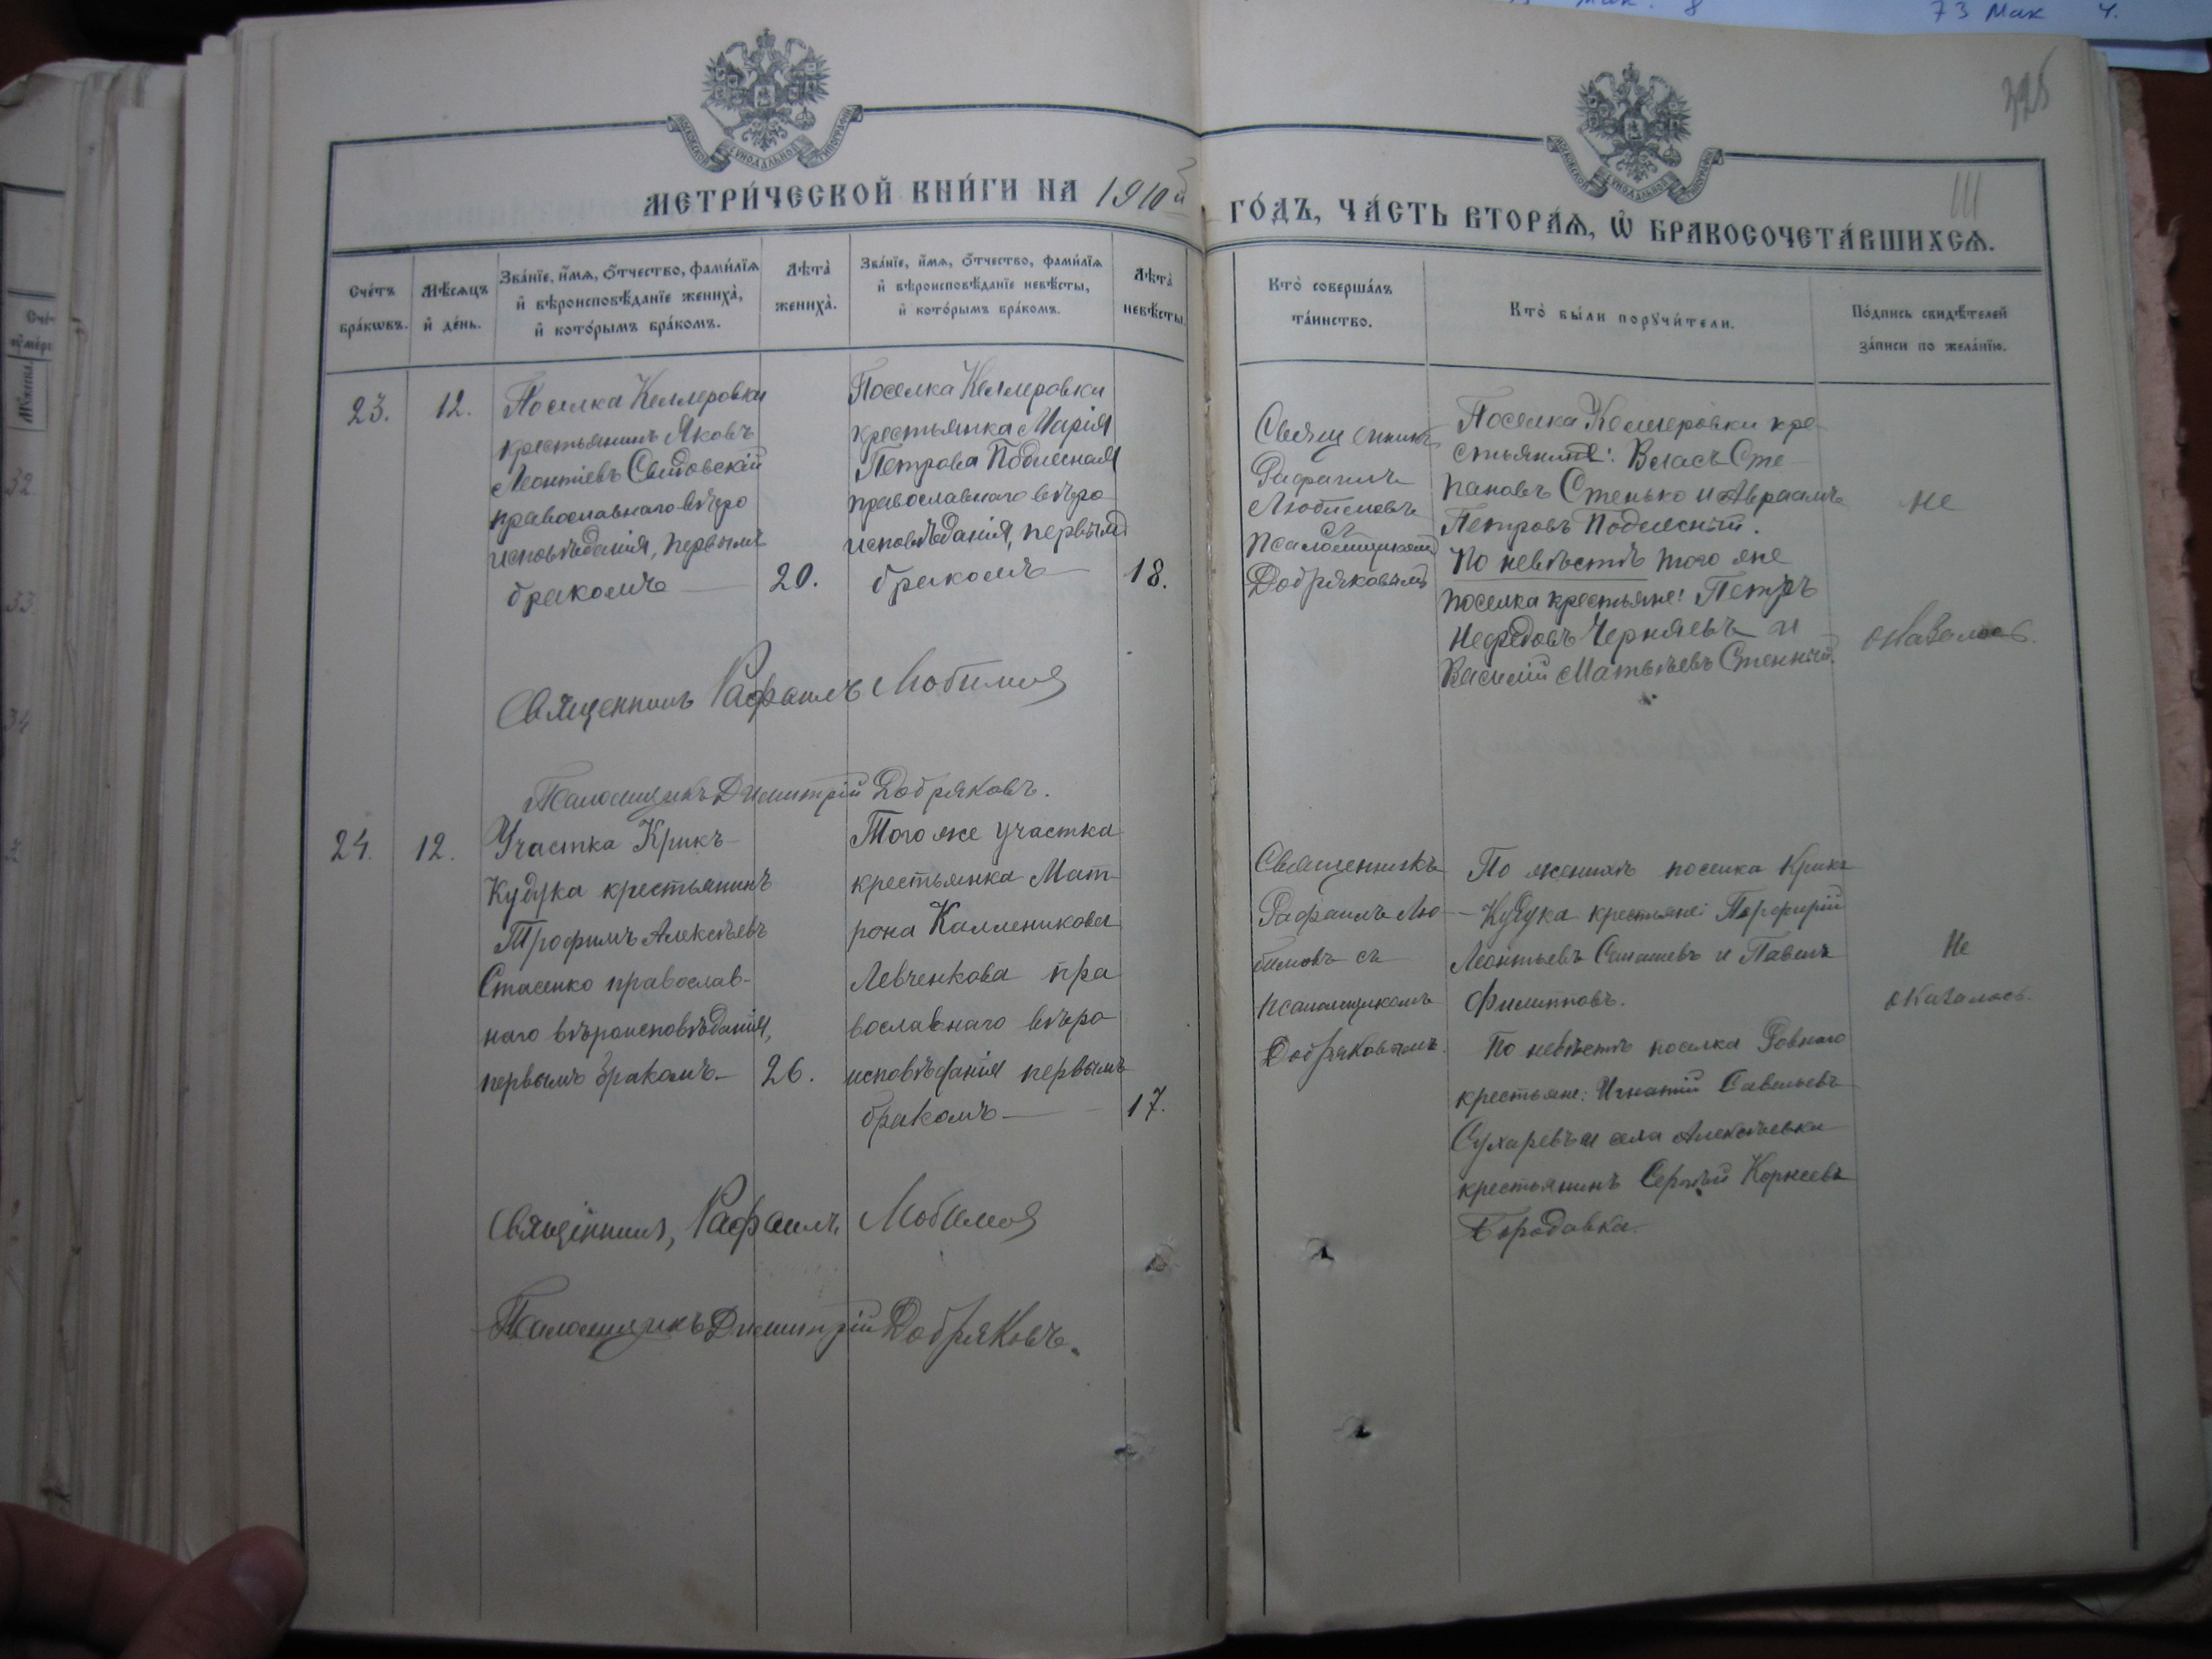 73 Мак 4.
325
МЕТРИ́ЧЕСКОЙ КНИ́ГИ НА 1910й
ГО́ДЪ, ЧА́СТЬ ВТОРА́Ѧ, Ѽ БРАКОСОЧЕТА́ВШИХСѦ.
III
Сче́тъ бра́кѡвъ.
Мѣ́сѧцъ и҆ де́нь.
Зва́нїе, и҆́мѧ, ѻ҆́тчество, фами́лїѧ и҆ вѣроисповѣ́данїе жениха̀, и҆ кото́рымъ бра́комъ.
Лѣта̀ жениха̀.
Зва́нїе, и҆́мѧ, ѻ҆́тчество, фами́лїѧ и҆ вѣроисповѣ́данїе невѣ́сты, и҆ кото́рымъ бра́комъ.
Лѣта̀ невѣ́сты.
Кто̀ соверша́лъ та́инство.
Кто̀ бы́ли порꙋчи́тели.
По́дпись свидѣ́телей за́писи по жела́нїю.
23.
12.
Поселка Келлеровки
крестьянинъ Яковъ
Леонтіевъ Свидовскій
православнаго вѣро
исповѣданія, первымъ
бракомъ
20.
Поселка Келлеровки
крестьянка Марія
Петрова Подлесная
православнаго вѣро
исповѣданія, первымъ
бракомъ
18.
Священникъ
Рафаилъ
Любимовъ
съ
псаломщикомъ
Добряковымъ
Поселка Келлеровки кре
стьяните: Власъ Сте
пановъ Стенько и Авраамъ
Петровъ Подлесный.
По невѣстѣ того же
поселка крестьяне: Петръ
Нефедовъ Черняевъ и
Василій Матвѣевъ Стенькій.
не
оказалось.
Священникъ Рафаилъ Любимов
Псаломщикъ Димитрій Добряковъ.
24.
12.
Участка Крикъ
Кудука крестьянинъ
Трофимъ Алексѣевъ
Стасенко православ-
наго вѣроисповѣданія,
первымъ бракомъ.
26.
Того же участка
крестьянка Мат
рона Каленикова
Левченкова пра
вославнаго вѣро
исповѣданія первымъ
бракомъ
17.
Священникъ
Рафаилъ Лю-
бимовъ съ
псаломщикомъ
Добряковымъ.
По женихѣ поселка Крикъ
-Кудука крестьяне: Порфирій
Леонтьевъ и Павелъ
Филипповъ.
По невѣстѣ поселка Ровнаго
крестьяне: Игнатій Савельевъ
Сухаревъ и села Алексѣевки
крестьянинъ Сергѣй Корнеевъ
Бородавка.
Не
оказалось.
Священникъ, Рафаилъ Любимов
Псаломщикъ Димитрій Добряковъ.